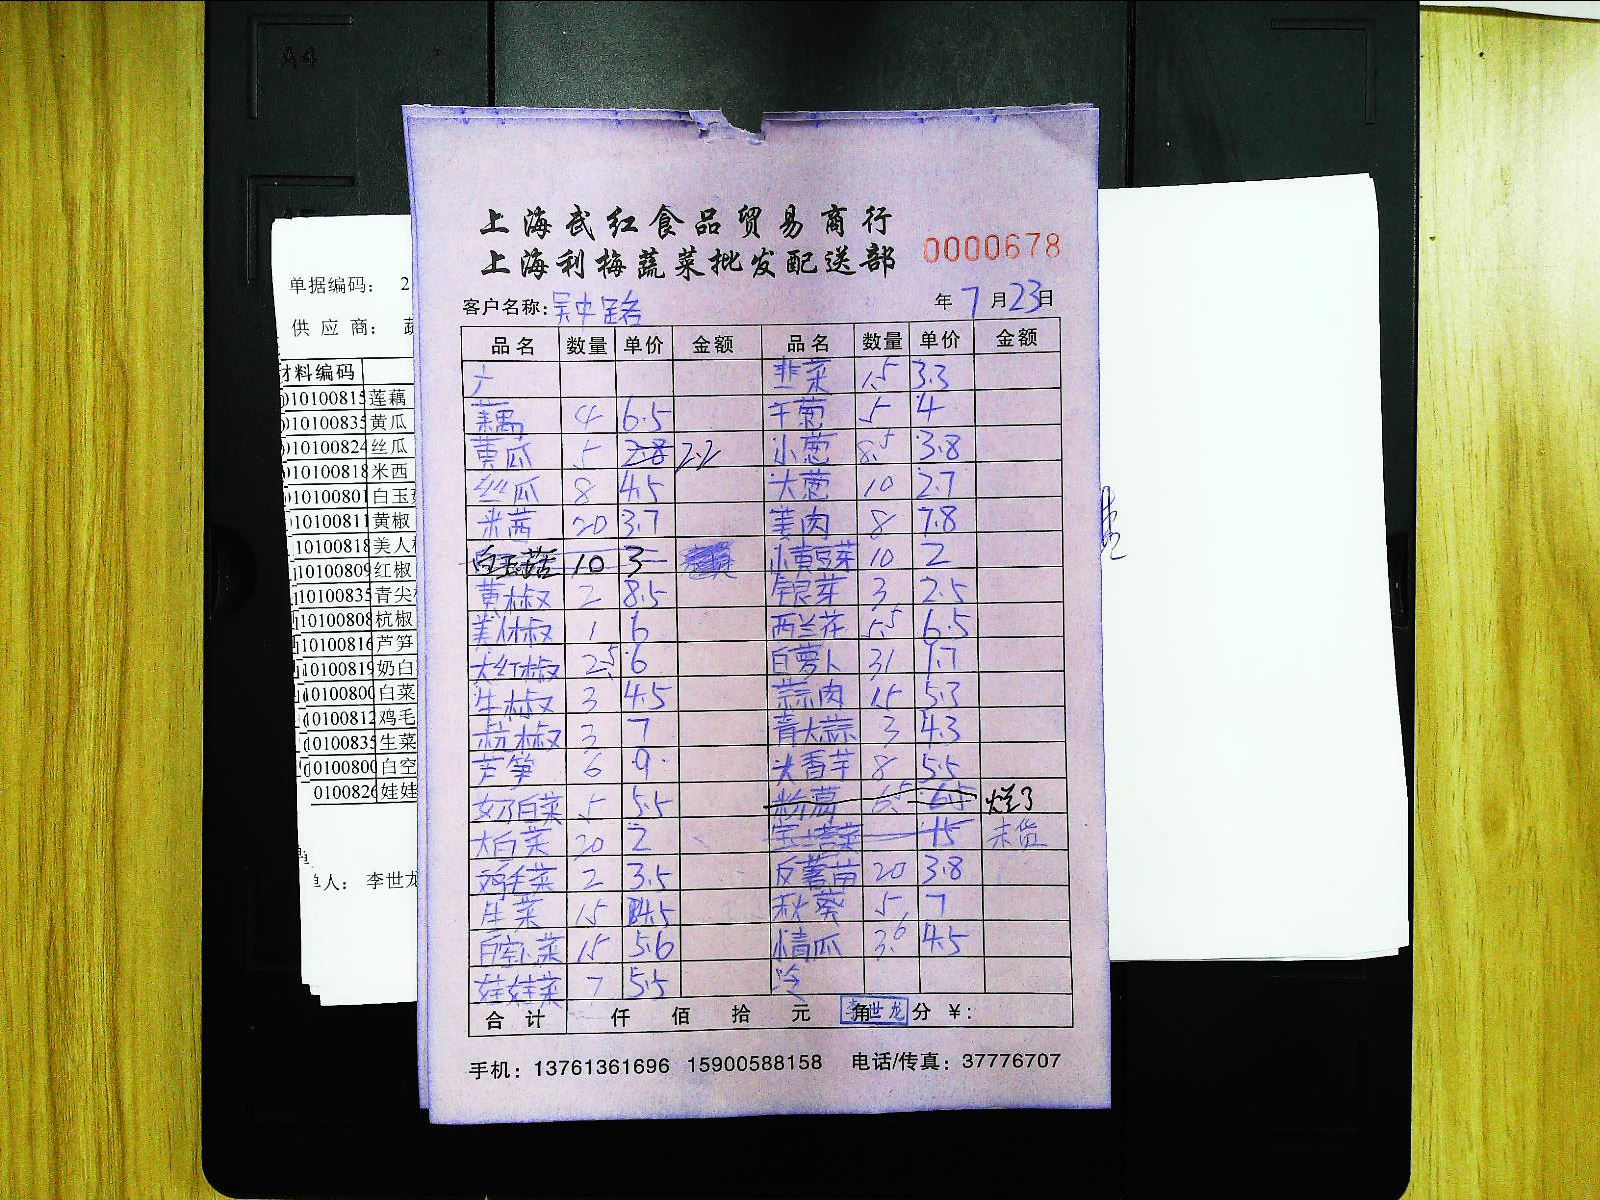 A4
上海武红食品贸易商行
上海利梅蔬菜批发配送部
0000678
客户名称: 吴中路 年 7 月 23 日
品名 数量 单价 金额 品名 数量 单价 金额
韭菜 1.5 3.3
藕 4 6.5 干葱 5 4
黄瓜 5 2.8 2.2 小葱 8.5 3.8
丝瓜 8 4.5 大葱 10 2.7
米茜 20 3.7 姜肉 8 7.8
白玉菇 10 3 小黄豆芽 10 2
黄椒 2 8.5 银芽 3 2.5
美人椒 1 6 西兰花 5.5 6.5
大红椒 2.5 6 白萝卜 31 1.7
牛椒 3 4.5 蒜肉 15 5.3
杭椒 3 7 青大蒜 3 4.3
芦笋 6 9 大香芋 8 5.5
奶白菜 5 5.5 粉葛 6.5 6.5 烂了
大白菜 20 2 宝塔菜 15 未货
鸡毛菜 2 3.5 反薯苗 20 3.8
生菜 15 4.5 秋葵 5 7
白空心菜 15 5.6 小青瓜 3.6 4.5
娃娃菜 7 5.5
合计 仟 佰 拾 元 角 分 ¥:
李世龙
手机: 13761361696 15900588158 电话/传真: 37776707
单据编码: 2
供应商: 蔬
材料编码
010100815 莲藕
010100835 黄瓜
010100824 丝瓜
010100818 米西
010100801 白玉
10100811 黄椒
10100818 美人
10100809 红椒
10100835 青尖
10100808 杭椒
10100816 芦笋
10100819 奶白
10100800 白菜
10100812 鸡毛
10100835 生菜
0100800 白空
010082 娃娃
单人: 李世龙